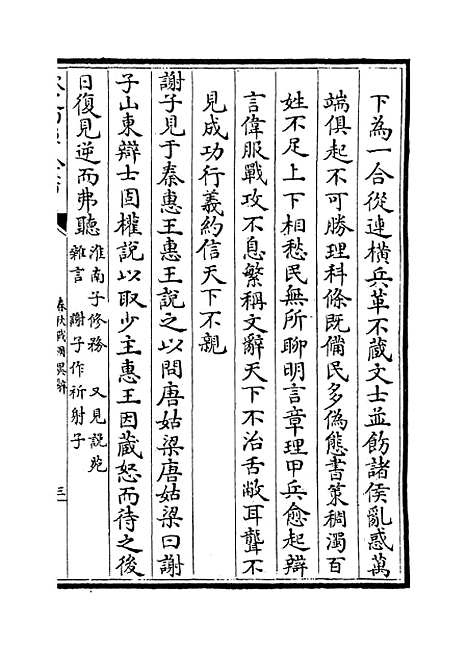 下為一合從連橫兵革不蔵文士並飭諸侯亂惑萬
端俱起不可勝理科條既備民多偽態書策稠濁百
姓不足上下相愁民無所聊明言章理甲兵愈起辯
言偉服戰攻不息繁稱文辭天下不治舌敝耳聾不
見成功行義約信天下不親
謝子見于秦惠王惠王說之以問唐姑梁唐姑梁曰謝
子山東辯士固權說以取少主惠王因蔵怒而待之後
日復見逆而弗聽
淮南子修務 又見說苑
雜言 謝子作祈射子
春秋戰國異辭
三